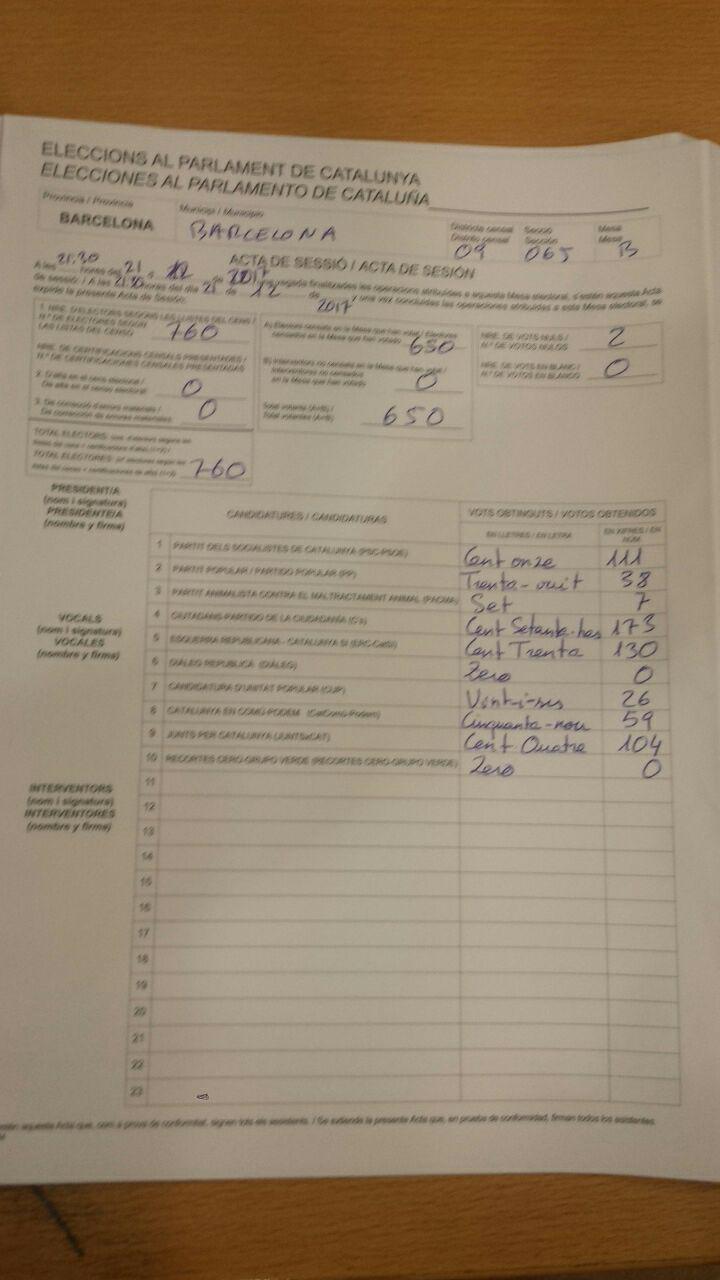 ELECCIONS AL PARLAMENT DE CATALUNYA
ELECCIONES AL PARLAMENTO DE CATALUÑA
Província / Provincia
BARCELONA
Municipi / Municipio
BARCELONA
Districte censal
Distrito censal
09
Secció
Sección
065
Mesa
Mesa
B
ACTA DE SESSIÓ / ACTA DE SESIÓN
A les 21,30 hores del 21 d 12 de 2017 una vegada finalitzades les operacions atribuïdes a aquesta Mesa electoral, s'estén aquesta Acta
de sessió. / A las 21,30 horas del día 21 de 12 de 2017 y una vez concluidas las operaciones atribuidas a esta Mesa electoral, se
expide la presente Acta de Sesión.
1. NRE. D'ELECTORS SEGONS LES LLISTES DEL CENS /
N.º DE ELECTORES SEGÚN
LAS LISTAS DEL CENSO
760
NRE. DE CERTIFICACIONS CENSALS PRESENTADES /
N.º DE CERTIFICACIONES CENSALES PRESENTADAS
2. D'alta en el cens electoral /
De alta en el censo electoral
0
3. De correcció d'errors materials /
De corrección de errores materiales
0
TOTAL ELECTORS:
TOTAL ELECTORES:
760
A) Electors censats en la Mesa que han votat / Electores
censados en la Mesa que han votado
650
B) Interventors no censats en la Mesa que han votat /
Interventores no censados
en la Mesa que han votado
0
Total votants (A+B) /
Total votantes (A+B)
650
NRE. DE VOTS NULS /
N.º DE VOTOS NULOS
2
NRE. DE VOTS EN BLANC /
N.º DE VOTOS EN BLANCO
0
PRESIDENT/A
(nom i signatura)
PRESIDENTE/A
(nombre y firma)
VOCALS
(nom i signatura)
VOCALES
(nombre y firma)
INTERVENTORS
(nom i signatura)
INTERVENTORES
(nombre y firma)
CANDIDATURES / CANDIDATURAS
VOTS OBTINGUTS / VOTOS OBTENIDOS
EN LLETRES / EN LETRA
EN XIFRES / EN NÚM.
1 PARTIT DELS SOCIALISTES DE CATALUNYA (PSC-PSOE) Cent onze 111
2 PARTIT POPULAR / PARTIDO POPULAR (PP) Trenta-vuit 38
3 PARTIT ANIMALISTA CONTRA EL MALTRACTAMENT ANIMAL (PACMA) Set 7
4 CIUTADANS-PARTIDO DE LA CIUDADANÍA (C's) Cent Setanta-tres 173
5 ESQUERRA REPUBLICANA - CATALUNYA SÍ (ERC-CatSí) Cent Trenta 130
6 DIÀLEG REPUBLICÀ (DIÀLEG) Zero 0
7 CANDIDATURA D'UNITAT POPULAR (CUP) Vint-i-sis 26
8 CATALUNYA EN COMÚ-PODEM (CatComú-Podem) Cinquanta-nou 59
9 JUNTS PER CATALUNYA (JUNTSxCAT) Cent Quatre 104
10 RECORTES CERO-GRUPO VERDE (RECORTES CERO-GRUPO VERDE) Zero 0
11
12
13
14
15
16
17
18
19
20
21
22
23
estén aquesta Acta que, com a prova de conformitat, signen tots els assistents. / Se extiende la presente Acta que, en prueba de conformidad, firman todos los asistentes.